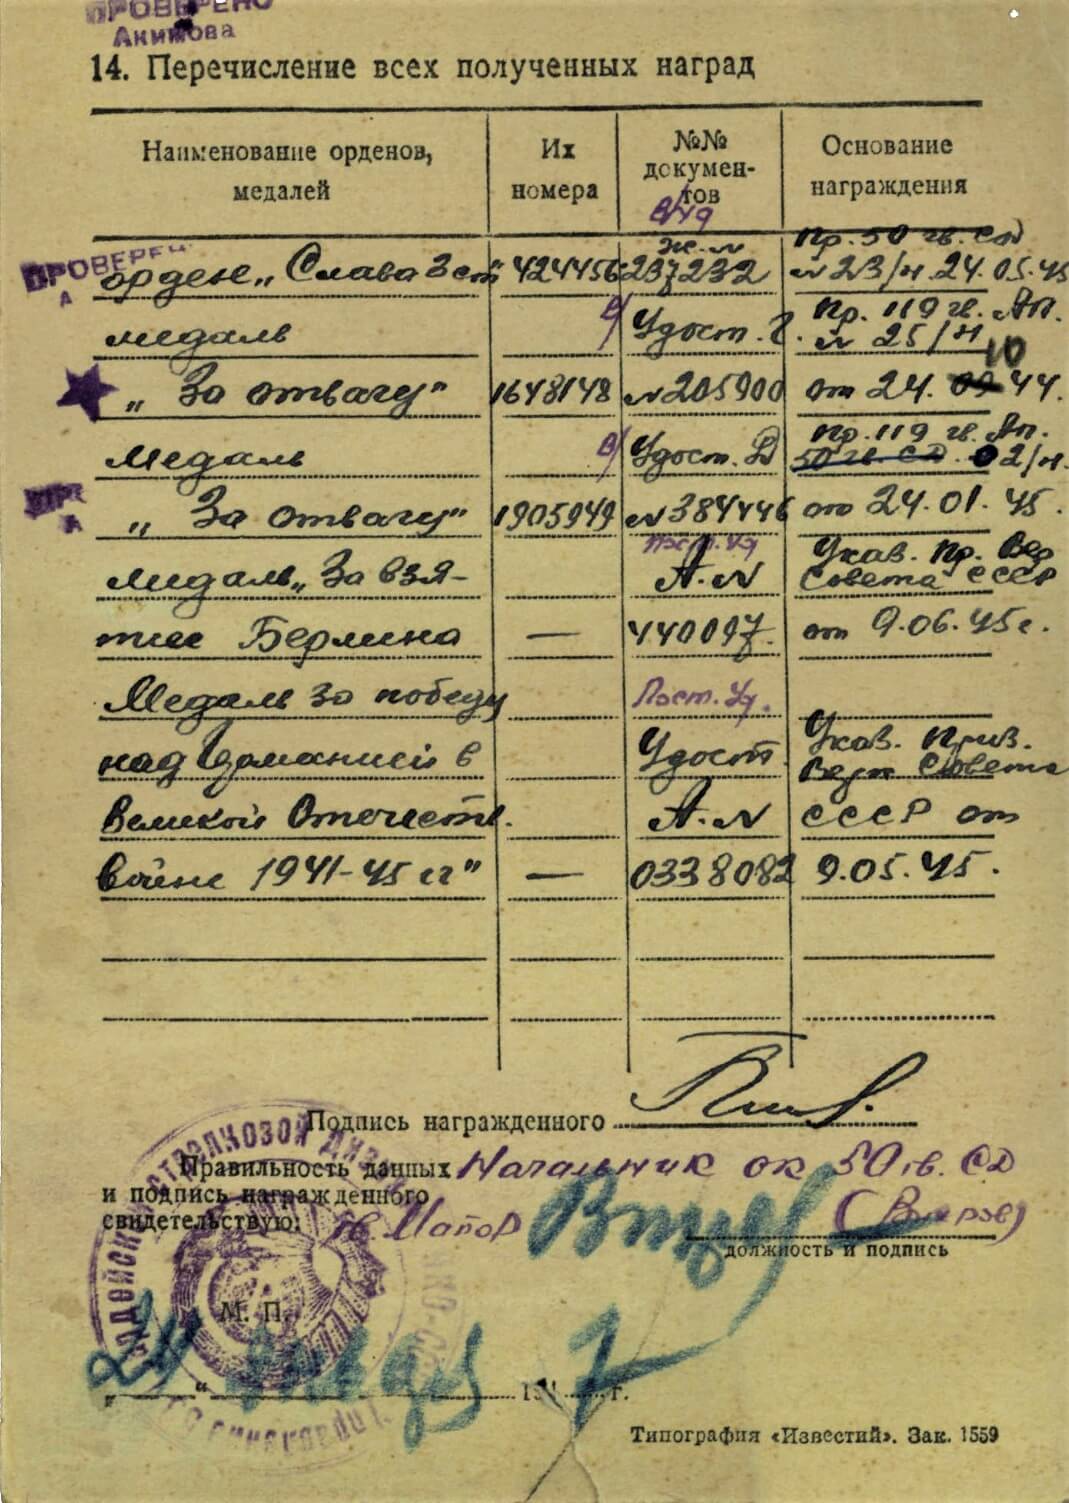 ПРОВЕРЕНО
Акимова
14. Перечисление всех полученных наград
Наименование орденов, медалей
Их номера
№№ документов
Основание награждения
в/уд
ПРОВЕРЕН
А
орден „Слава 3 ст" 424456 Ж.N 237232 Пр. 50 гв. СД N 23/н 24.05.45
медаль Удост. Г. Пр. 119 гв. Ап. N 25/н
„За отвагу" 1648148 N 205900 от 24. 10 44.
Медаль Удост. Д Пр. 119 гв. Ап. 50 гв. СД 02/н.
„За отвагу" 1905949 N 384446 от 24.01.45.
А
медаль „За взя- Пост. уд А.N Указ. Пр. Вер Совета СССР
тие Берлина — 440097. от 9.06.45 г.
Медаль за победу Пост. Уд.
над Германией в Удост Указ. През. Верх Совета
Великой Отечеств. А.N СССР от
войне 1941-45 гг" — 0338082 9.05.45.
Подпись награжденного
Правильность данных Начальник ок 50 гв. СД
и подпись награжденного
свидетельствую: гв. Майор
должность и подпись
СТРЕЛКОВОЙ
М. П.
„ 24 " января 1947 г.
Типография «Известий». Зак. 1559